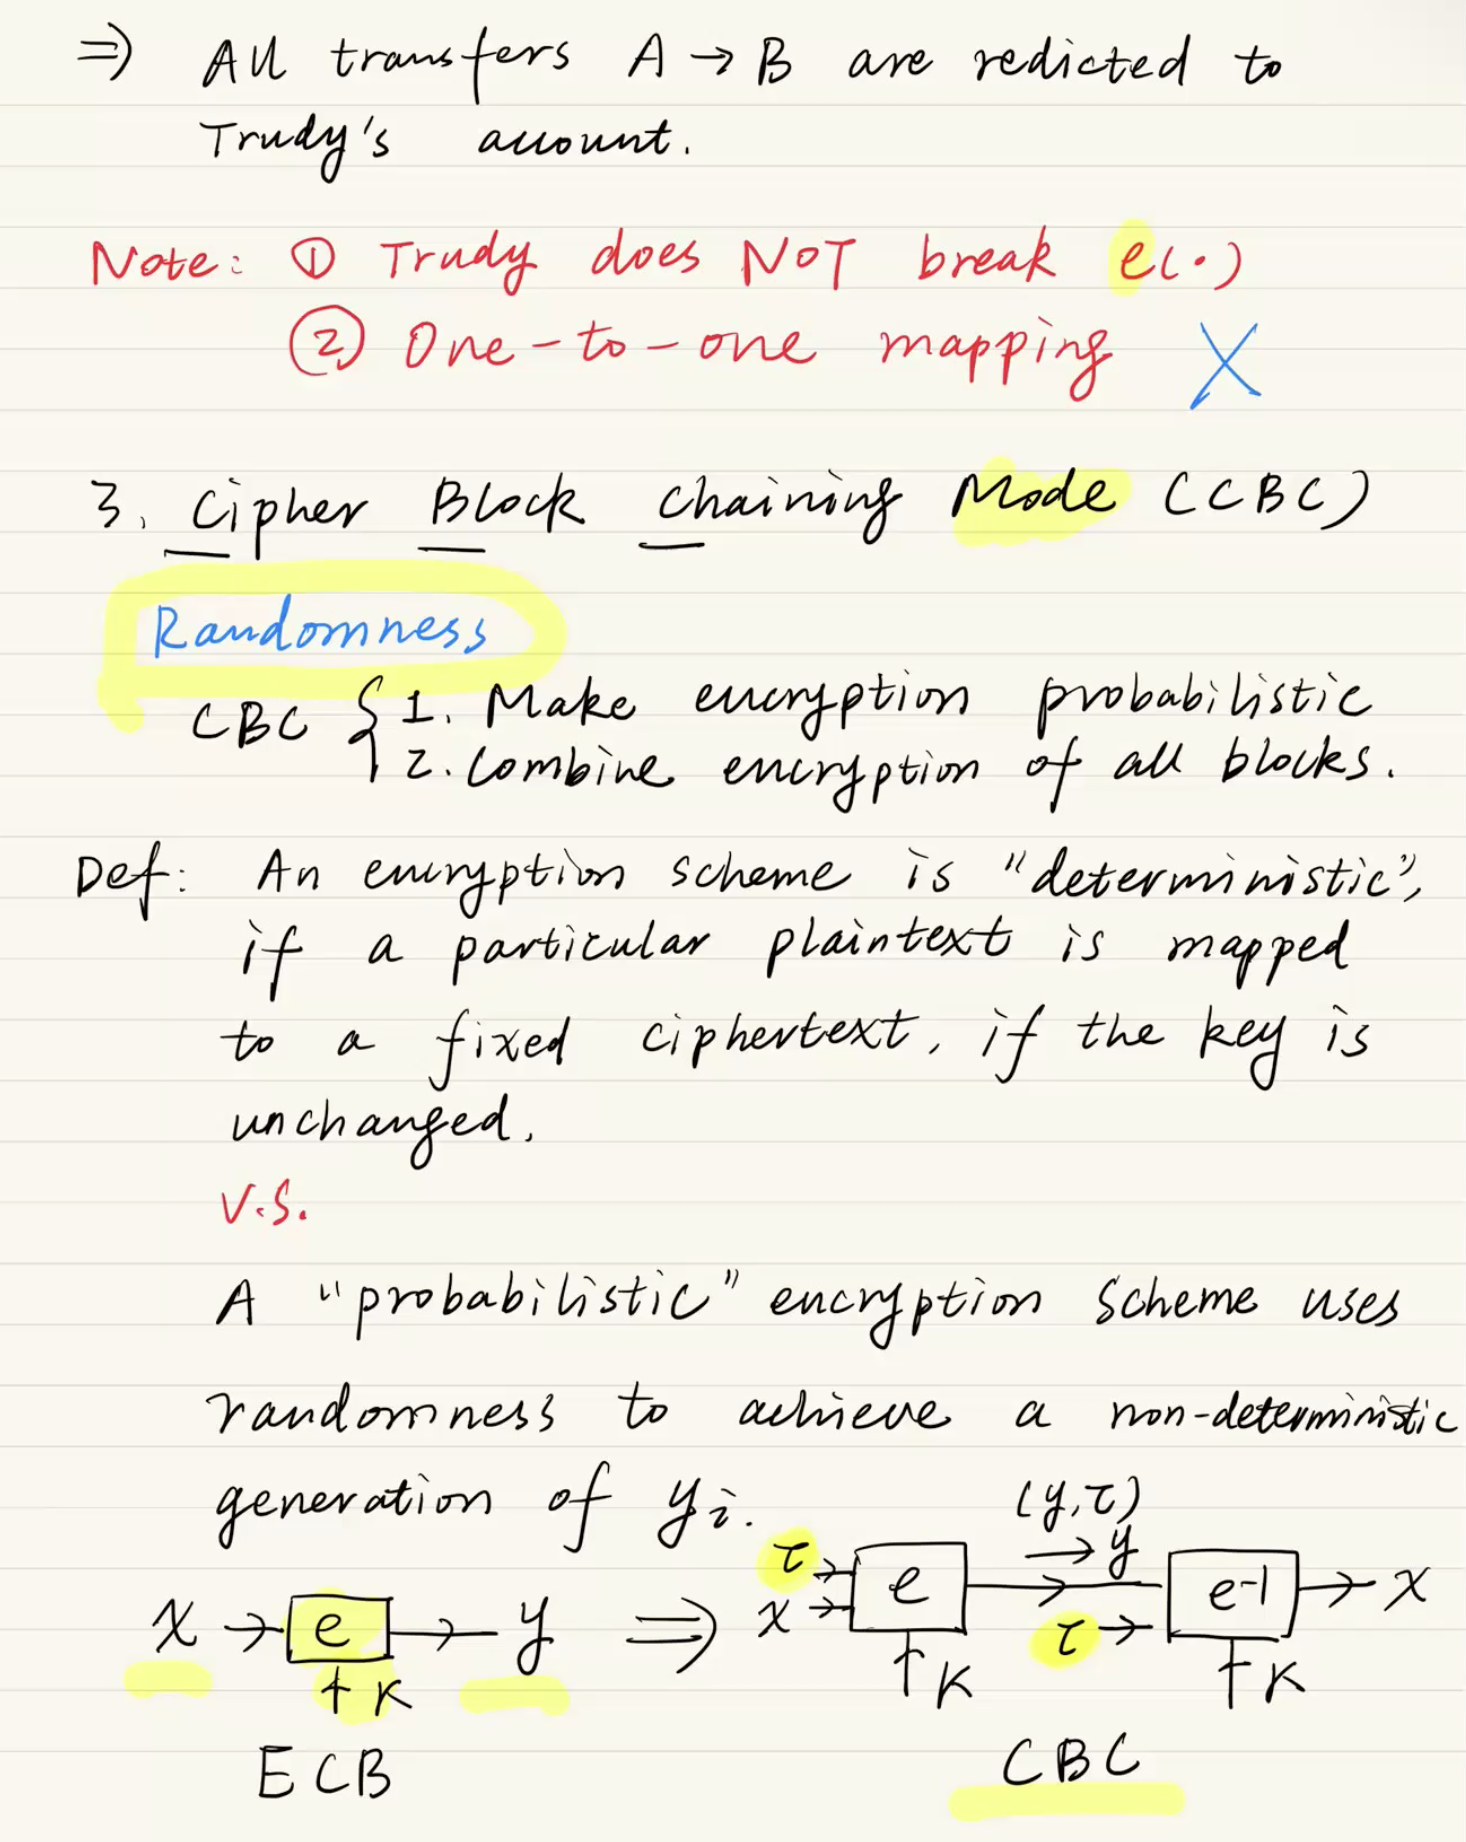 ⇒) All transfers A → B are redicted to
Trudy's account.
Note: ① Trudy does NOT break e(·)
② One-to-one mapping X
3. Cipher Block Chaining Mode (CBC)
Randomness
CBC { 1. Make encryption probabilistic
2. Combine encryption of all blocks.
Def: An encryption scheme is "deterministic",
if a particular plaintext is mapped
to a fixed ciphertext, if the key is
unchanged.
V.S.
A "probabilistic" encryption scheme uses
randomness to achieve a non-deterministic
generation of yi.
(y,τ)
x → e → y ⇒ τ → x → e → y e-1 → x
τ →
↑ K ↑ K ↑ K
ECB CBC